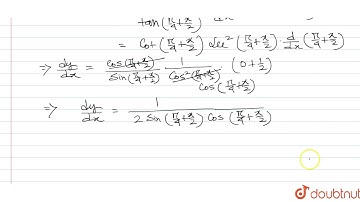 tan(π/4+x/2)
= Cot(π/4+x/2) sec²(π/4+x/2) · d/dx(π/4+x/2)
⇒ dy/dx = cos(π/4+x/2)/sin(π/4+x/2) · 1/cos²(π/4+x/2) · (0+1/2)
cos(π/4+x/2)
⇒ dy/dx = 1/(2 sin(π/4+x/2) cos(π/4+x/2))
doubtnut